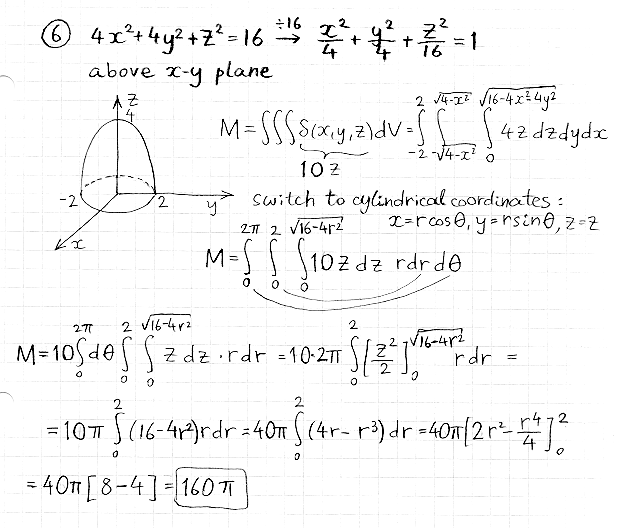 ⑥ 4x²+4y²+z²=16 ÷16→ x²/4 + y²/4 + z²/16 = 1
above x-y plane
z
4
-2 2 y
x
M=∭δ(x,y,z)dV=∫_{-2}^{2}∫_{-√(4-x²)}^{√(4-x²)}∫_{0}^{√(16-4x²-4y²)} 4z dzdydx
10z
switch to cylindrical coordinates:
x=rcosθ, y=rsinθ, z=z
M=∫_{0}^{2π}∫_{0}^{2}∫_{0}^{√(16-4r²)} 10z dz rdrdθ
M=10∫_{0}^{2π}dθ∫_{0}^{2}∫_{0}^{√(16-4r²)} z dz·rdr =10·2π∫_{0}^{2}[z²/2]_{0}^{√(16-4r²)} rdr =
=10π∫_{0}^{2}(16-4r²)rdr=40π∫_{0}^{2}(4r-r³)dr=40π[2r²-r⁴/4]_{0}^{2}
=40π[8-4]=160π